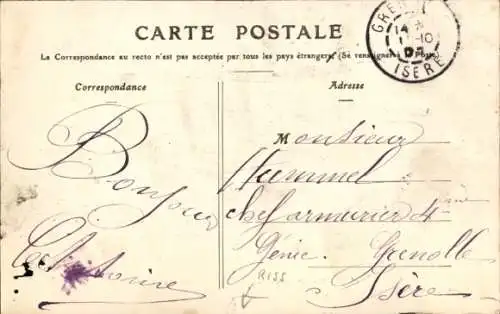 CARTE POSTALE
La Correspondance au recto n'est pas acceptée par tous les pays étrangers. (Se renseigner à la Poste)
GRE
14
10
ISERE
Correspondance
Adresse
Bonjour
Monsieur
Hummel
chef armurier 4ème
Génie. Grenoble
Isère
RISS